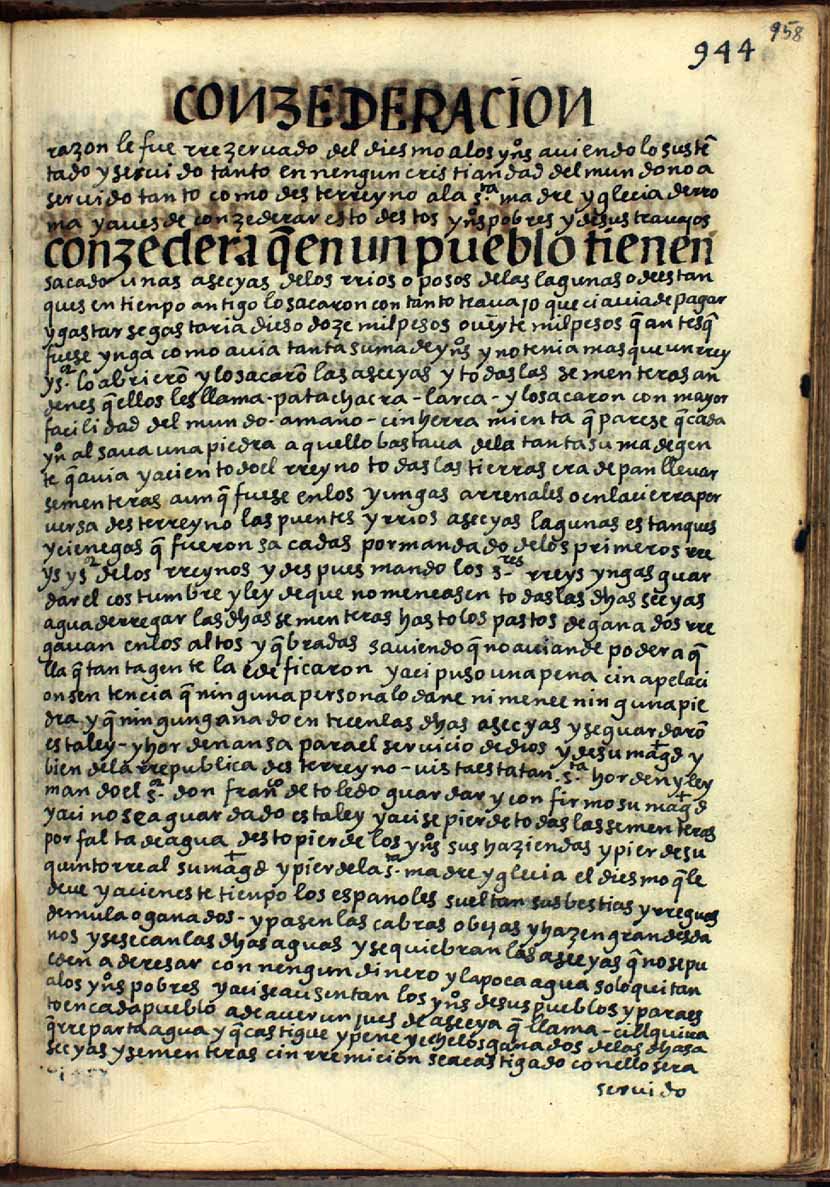 958
944
CONZEDERACION
razon le fue rrezeruado del diesmo a los yn̄s auiendo lo sustē
tado y seruido tanto en nengun cristiandad del mundo no a
seruido tanto como deste rreyno a la s.ta madre yglecia de rro
ma y aues de conzederar esto destos yn̄s pobres y de sus trauajos
conzedera q̄ en un pueblo tienen
sacado unas asecyas de los rrios o posos de las lagunas o de estan
ques en tienpo antigo lo sacaron con tanto trauajo que ci auia de pagar
y gastar se gastaria dies o doze mil pesos o ueyte mil pesos q̄ antes q̄
fuese ynga como auia tanta suma de yn̄s y no tenia mas que un rrey
y s.r lo abrierō y lo sacarō las asecyas y todas las sementeras an
denes q̄ ellos les llama - pata chacra - larca - y lo sacaron con mayor
facilidad del mundo - a mano - cin herramienta q̄ parese q̄ cada
yn̄ alsaua una piedra aquello bastaua de la tanta suma de gen
te q̄ auia y aci en todo el rreyno todas las tierras era de pan lleuar
sementeras aunq̄ fuese en los yungas arrenales o en la cierra por
uersa deste rreyno las puentes y rrios asecyas lagunas estanques
y cienegas q̄ fueron sacadas por mandado de los primeros rre
ys y s.r de los rreynos y despues mando los s.res rreys yngas guar
dar el costumbre y ley de que no meneasen todas las dhas secyas
agua de rregar las dhas sementeras hasto los pastos de ganados rre
gauan en los altos y q̄bradas sauiendo q̄ no auian de poder aq̄
lla q̄ tanta gente la edeficaron y aci puso una pena cin apelaci
on sentencia q̄ ninguna persona lo dane ni menee ninguna pie
dra y q̄ ningun ganado entre en las dhas asecyas y se guardarō
esta ley - y hordenansa para el seruicio de dios y de su mag.d y
bien de la rrepublica deste rreyno - uista esta tan s.ta horden y ley
mando el s.r don fran.co de toledo guardar y confirmo su mag.d
y aci no se a guardado esta ley y aci se pierde todas las sementeras
por falta de agua desto pierde los yn̄s sus haziendas y pierde su
quinto rreal su mag.d y pierde la s.ta madre yglecia el diesmo q̄ le
deue y aci en este tienpo los españoles sueltan sus bestias y rreguas
de mula o ganados - y pasen las cabras obejas y hazen grandes da
nos y se secan las dhas aguas y se quiebran las asecyas q̄ no se pu
eden aderesar con nengun dinero y la poca agua solo quitan
a los yn̄s pobres y aci se ausentan los yn̄s de sus pueblos y para es
to en cada pueblo a de auer un jues de asecya q̄ llama - cillquiua
q̄ rreparta agua y q̄ castigue y pene y eche los ganados de las dhas a
secyas y sementeras cin rremicion sea castigado con ello sera
seruido